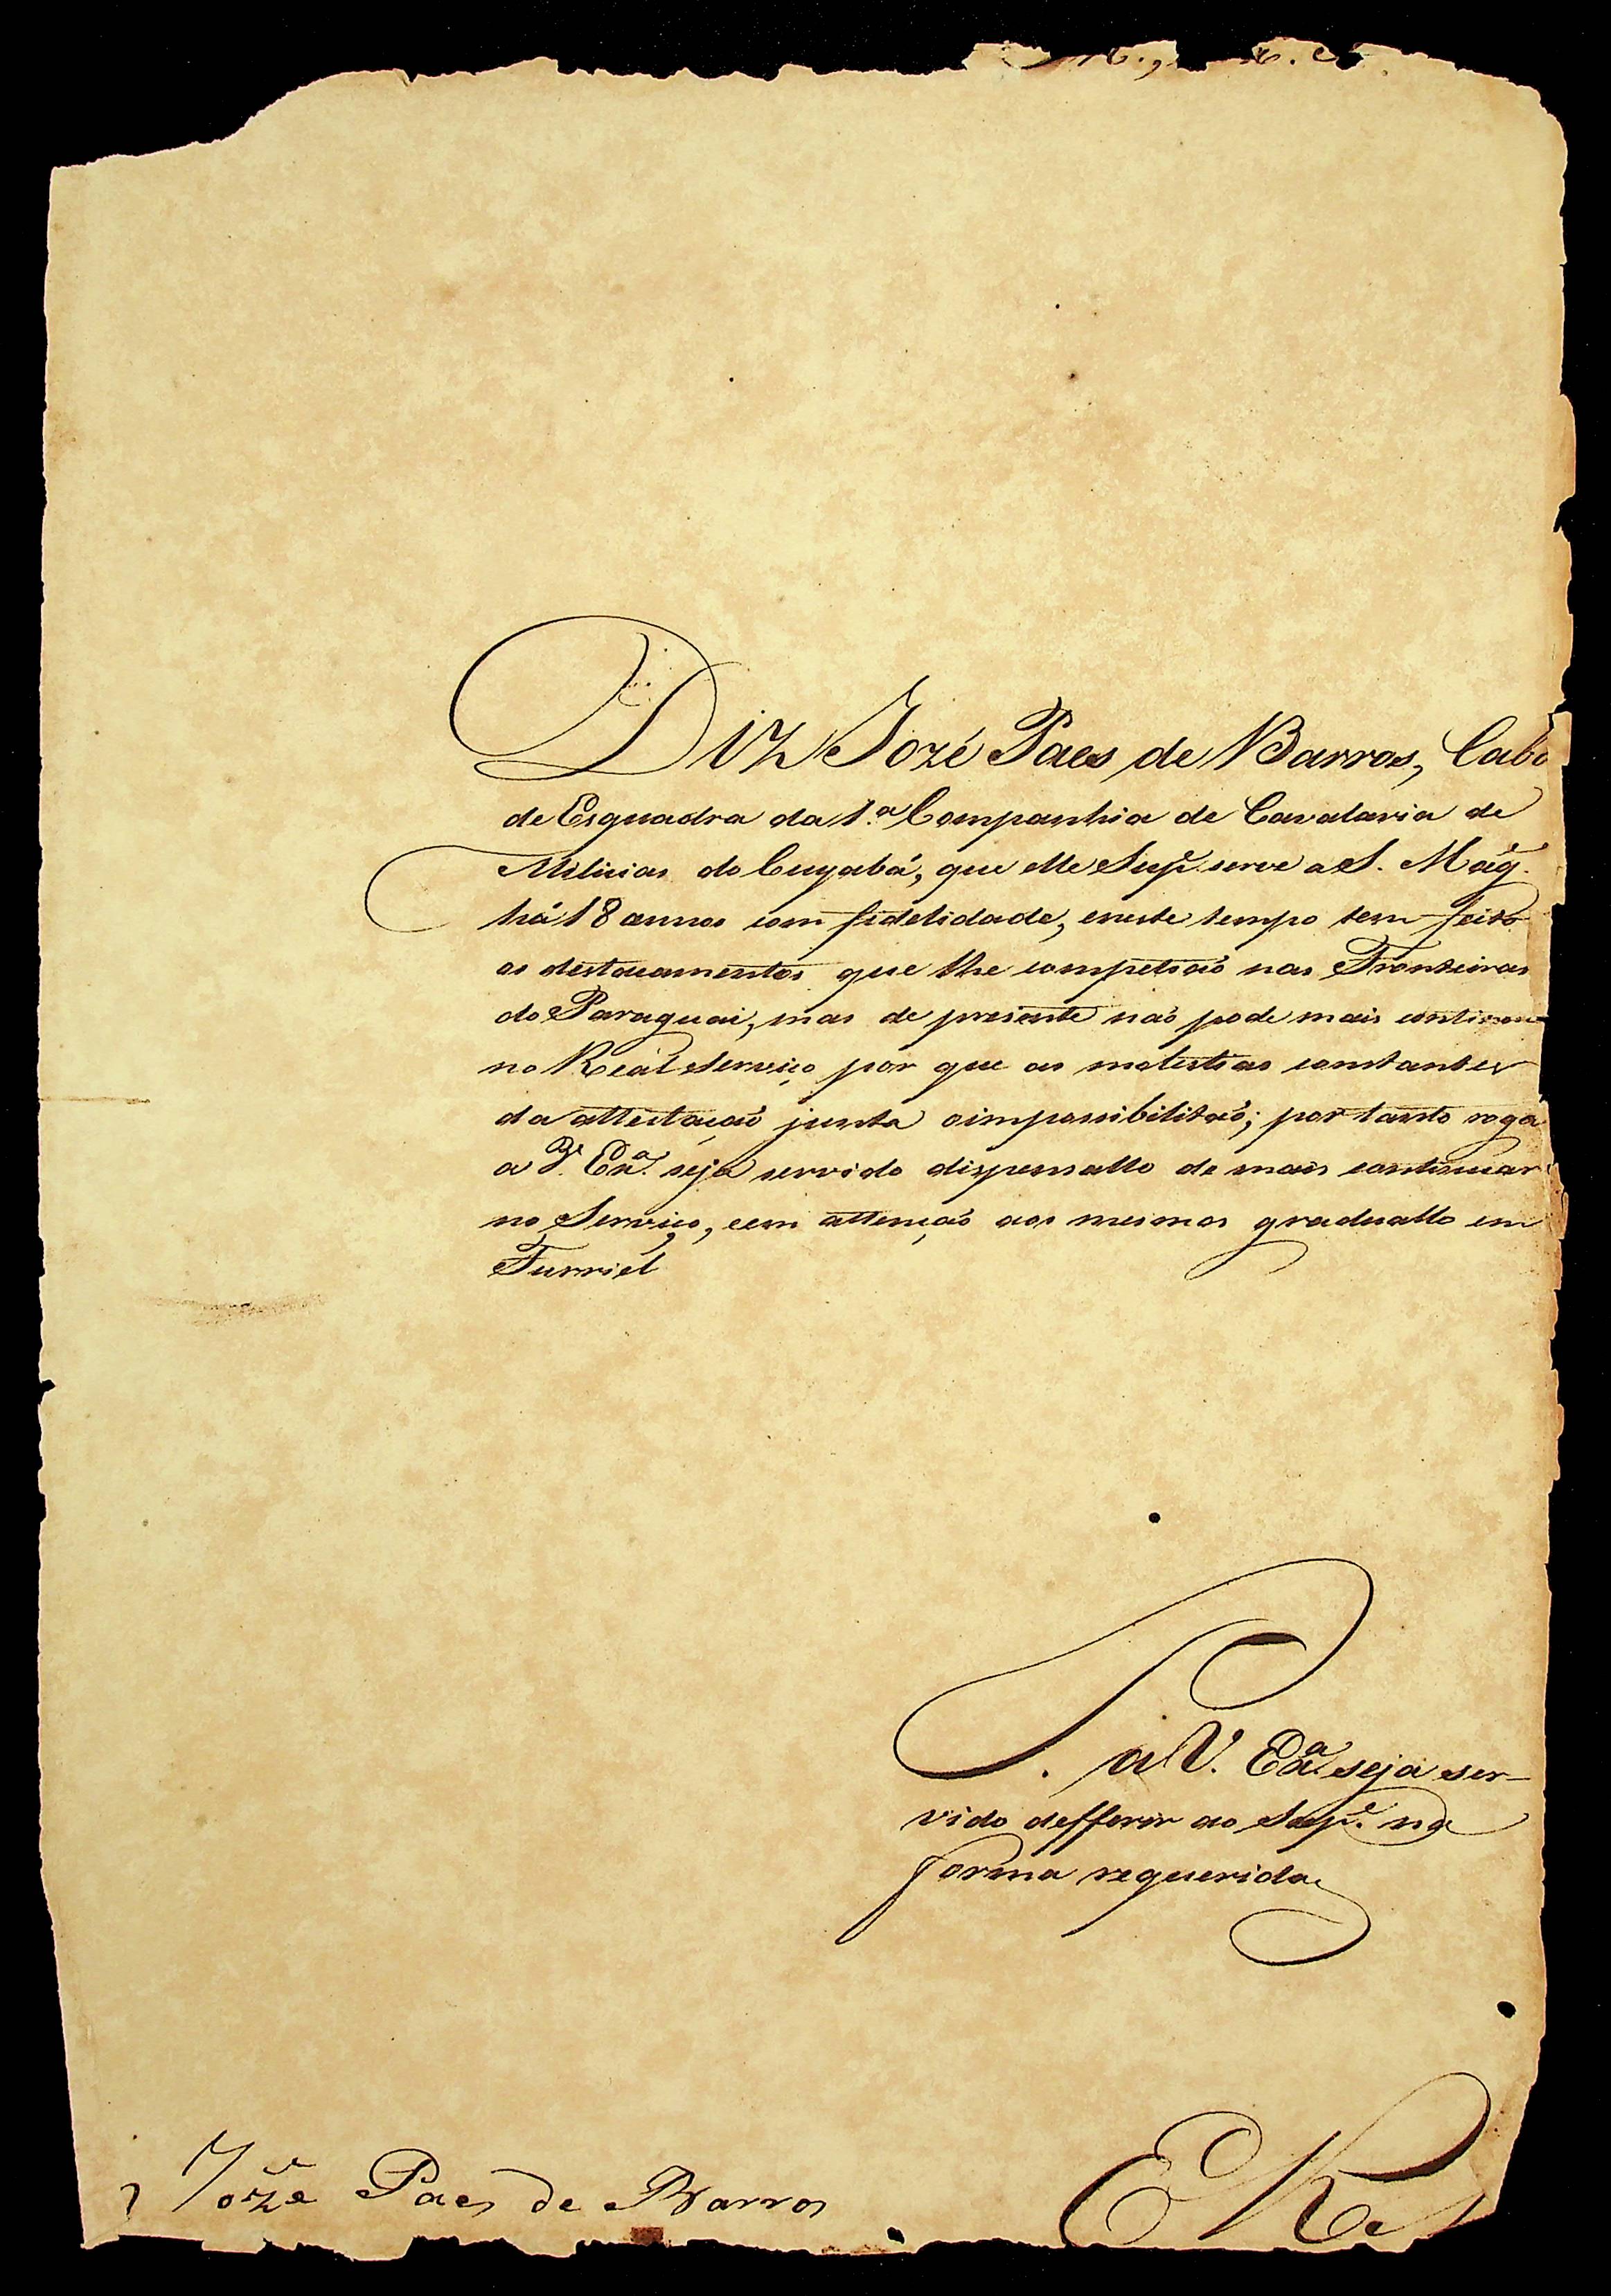 Diz Jozé Paes de Barros, Cabo
de Esquadra da 1.ª Companhia de Cavalaria de
Milicias do Cuyabá, que elle Sup.e serve a S. Mag.e
há 18 annos com fidelidade, eneste tempo tem feito
os destacamentos que lhe competião nas Fronteiras
do Paraguai, mas de prezente naõ pode mais continuar
no Real Serviço por que as molestias constantes
da attestaçaõ junta oimpossibilitaõ; por tanto roga
a V. Ex.ª seja servido dispensallo de mais continuar
no Serviço, eem attençaõ aos mesmos graduallo em
Furriel
P. a V. Ex.ª seja ser-
vido defferir ao Sup.e na
forma requerida
Joze Paes de Barros
E R